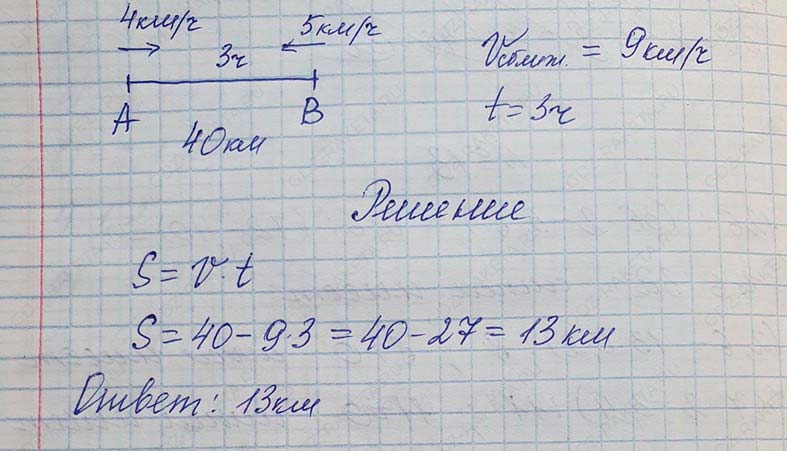 4км/ч 5км/ч
3ч
A B
40км
Vсближ. = 9км/ч
t = 3ч
Решение
S = V · t
S = 40 - 9·3 = 40 - 27 = 13 км
Ответ: 13км